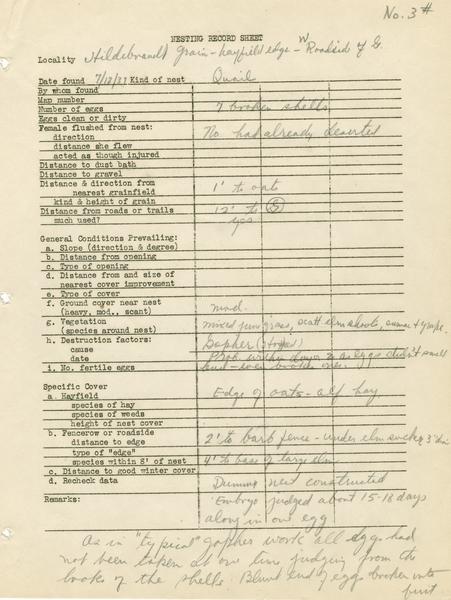 No. 3 #
NESTING RECORD SHEET
Locality Hildebrandt Grain - hayfield edge - W Roadside of G.
Date found 7/13/37 Kind of nest Quail
By whom found
Map number
Number of eggs 7 broken shells
Eggs clean or dirty
Female flushed from nest: No had already deserted
direction
distance she flew
acted as though injured
Distance to dust bath
Distance to gravel
Distance & direction from
nearest grainfield 1' to oats
kind & height of grain
Distance from roads or trails 12' to S
much used? yes
General Conditions Prevailing:
a. Slope (direction & degree)
b. Distance from opening
c. Type of opening
d. Distance from and size of
nearest cover improvement
e. Type of cover
f. Ground cover near nest
(heavy, mod., scant) mod.
g. Vegetation mixed june grass, scatt elm shoots, sumac & grape.
(species around nest)
h. Destruction factors: Gopher (striped)
cause
date Prob. within days as eggs didn't smell
i. No. fertile eggs
Specific Cover
a. Hayfield Edge of oats - alf hay.
species of hay
species of weeds
height of nest cover
b. Fencerow or roadside
distance to edge 2' to barb fence - under elm sucker 3"
type of "edge"
species within 8' of nest 4' to base of large elm
c. Distance to good winter cover
d. Recheck data Dummy nest constructed
Remarks: Embryo judged about 15-18 days
along in one egg
As in "typical" gopher work all eggs had
not been taken at one time judging from the
looks of the shells. Blunt end of eggs broken into
first